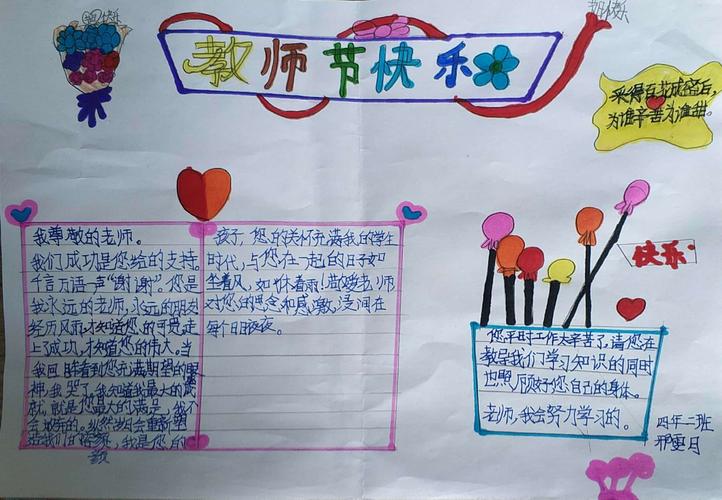 教师节快乐
采得百花成蜜后，
为谁辛苦为谁甜。
快乐
我尊敬的老师。
我们成功是您给的支持。
千言万语一声“谢谢”，您是
我永远的老师，永远的朋友
经历风雨，才知道您的可贵，走
上了成功，才知道您的伟大。当
我回眸看到您充满期望的眼
神，我哭了，我知道我最大的成
就，就是您最大的满足，我不
会
给我们的
我是您的
孩子，您的关怀充满我的学生
时代，与您在一起的日子如
坐春风，如沐春雨！
老师
对您的思念和感激，浸润在
每个日日夜夜。
您平时工作太辛苦了，请您在
教导我们学习知识的同时
也照顾好您自己的身体。
老师，我会努力学习的。
四年二班
邢
月